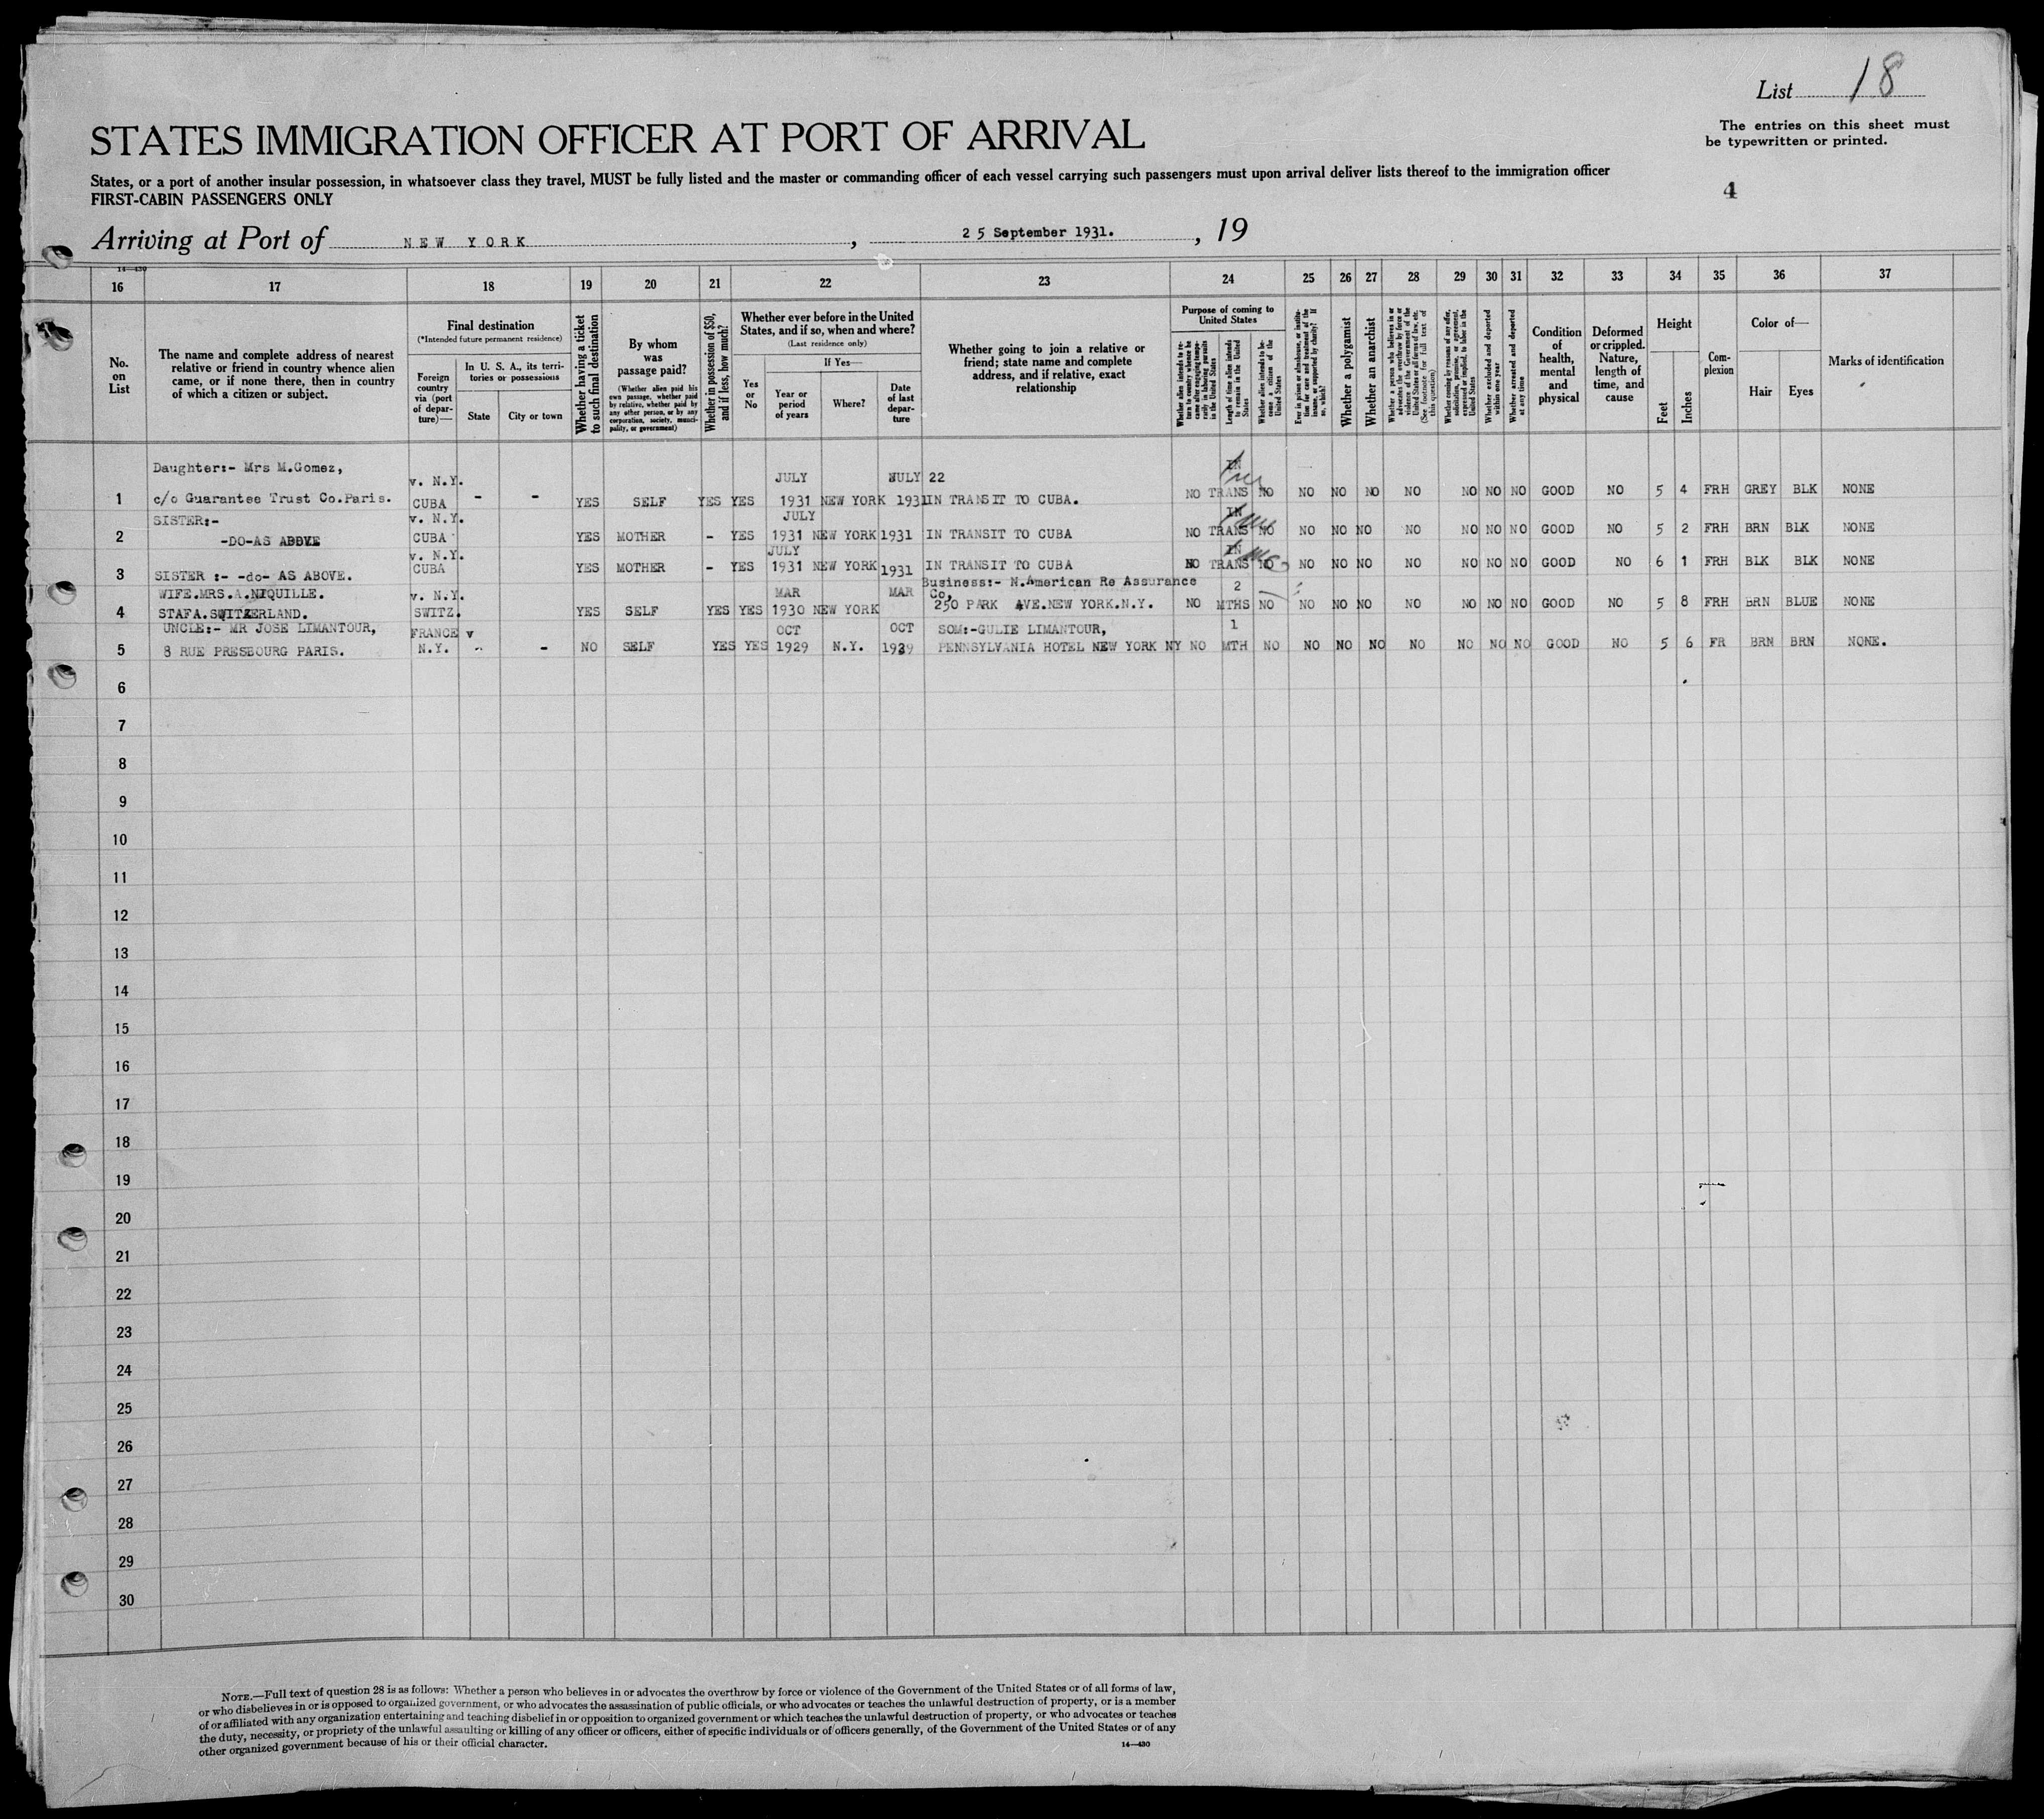 List 18
The entries on this sheet must
be typewritten or printed.
4
STATES IMMIGRATION OFFICER AT PORT OF ARRIVAL
States, or a port of another insular possession, in whatsoever class they travel, MUST be fully listed and the master or commanding officer of each vessel carrying such passengers must upon arrival deliver lists thereof to the immigration officer
FIRST-CABIN PASSENGERS ONLY
Arriving at Port of NEW YORK, 25 September 1931., 19
14—430
16 17 18 19 20 21 22 23 24 25 26 27 28 29 30 31 32 33 34 35 36 37
No.
on
List
The name and complete address of nearest
relative or friend in country whence alien
came, or if none there, then in country
of which a citizen or subject.
Final destination
(*Intended future permanent residence)
Foreign
country
via (port
of depar-
ture)—
In U. S. A., its terri-
tories or possessions
State
City or town
Whether having a ticket
to such final destination
By whom
was
passage paid?
(Whether alien paid his
own passage, whether paid
by relative, whether paid by
any other person, or by any
corporation, society, munici-
pality, or government)
Whether in possession of $50,
and if less, how much?
Whether ever before in the United
States, and if so, when and where?
(Last residence only)
Yes
or
No
If Yes—
Year or
period
of years
Where?
Date
of last
depar-
ture
Whether going to join a relative or
friend; state name and complete
address, and if relative, exact
relationship
Purpose of coming to
United States
Whether alien intends to re-
turn to country whence he
came after engaging tempo-
rarily in laboring pursuits
in the United States
Length of time alien intends
to remain in the United
States
Whether alien intends to be-
come a citizen of the
United States
Ever in prison or almshouse, or institu-
tion for care and treatment of the
insane, or supported by charity? If
so, which?
Whether a polygamist
Whether an anarchist
Whether a person who believes in or
advocates the overthrow by force or
violence of the Government of the
United States or all forms of law, etc.
(See footnote for full text of
this question)
Whether coming by reasons of any offer,
solicitation, promise, or agreement,
expressed or implied, to labor in the
United States
Whether excluded and deported
within one year
Whether arrested and deported
at any time
Condition
of
health,
mental
and
physical
Deformed
or crippled.
Nature,
length of
time, and
cause
Height
Feet
Inches
Com-
plexion
Color of—
Hair
Eyes
Marks of identification
Daughter:- Mrs M.Gomez, v. N.Y. JULY JULY 22 IN
1 c/o Guarantee Trust Co.Paris. CUBA - - YES SELF YES YES 1931 NEW YORK 1931 IN TRANSIT TO CUBA. NO TRANS NO NO NO NO NO NO NO NO GOOD NO 5 4 FRH GREY BLK NONE
SISTER:- v. N.Y. JULY IN
2 -DO-AS ABOVE CUBA YES MOTHER - YES 1931 NEW YORK 1931 IN TRANSIT TO CUBA NO TRANS NO NO NO NO NO NO NO NO GOOD NO 5 2 FRH BRN BLK NONE
v. N.Y. JULY IN
3 SISTER :- -do- AS ABOVE. CUBA YES MOTHER - YES 1931 NEW YORK 1931 IN TRANSIT TO CUBA NO TRANS NO NO NO NO NO NO NO NO GOOD NO 6 1 FRH BLK BLK NONE
WIFE.MRS.A.NIQUILLE. v. N.Y. MAR MAR Business:- N.American Re Assurance Co, 2
4 STAFA.SWITZERLAND. SWITZ. YES SELF YES YES 1930 NEW YORK 250 PARK AVE.NEW YORK.N.Y. NO MTHS NO NO NO NO NO NO NO NO GOOD NO 5 8 FRH BRN BLUE NONE
UNCLE:- MR JOSE LIMANTOUR, FRANCE v OCT OCT SOM:-GULIE LIMANTOUR, 1
5 8 RUE PRESBOURG PARIS. N.Y. - - NO SELF YES YES 1929 N.Y. 1929 PENNSYLVANIA HOTEL NEW YORK NY NO MTH NO NO NO NO NO NO NO NO GOOD NO 5 6 FR BRN BRN NONE.
6
7
8
9
10
11
12
13
14
15
16
17
18
19
20
21
22
23
24
25
26
27
28
29
30
NOTE.—Full text of question 28 is as follows: Whether a person who believes in or advocates the overthrow by force or violence of the Government of the United States or of all forms of law,
or who disbelieves in or is opposed to organized government, or who advocates the assassination of public officials, or who advocates or teaches the unlawful destruction of property, or is a member
of or affiliated with any organization entertaining and teaching disbelief in or opposition to organized government or which teaches the unlawful destruction of property, or who advocates or teaches
the duty, necessity, or propriety of the unlawful assaulting or killing of any officer or officers, either of specific individuals or of officers generally, of the Government of the United States or of any
other organized government because of his or their official character.
14—430